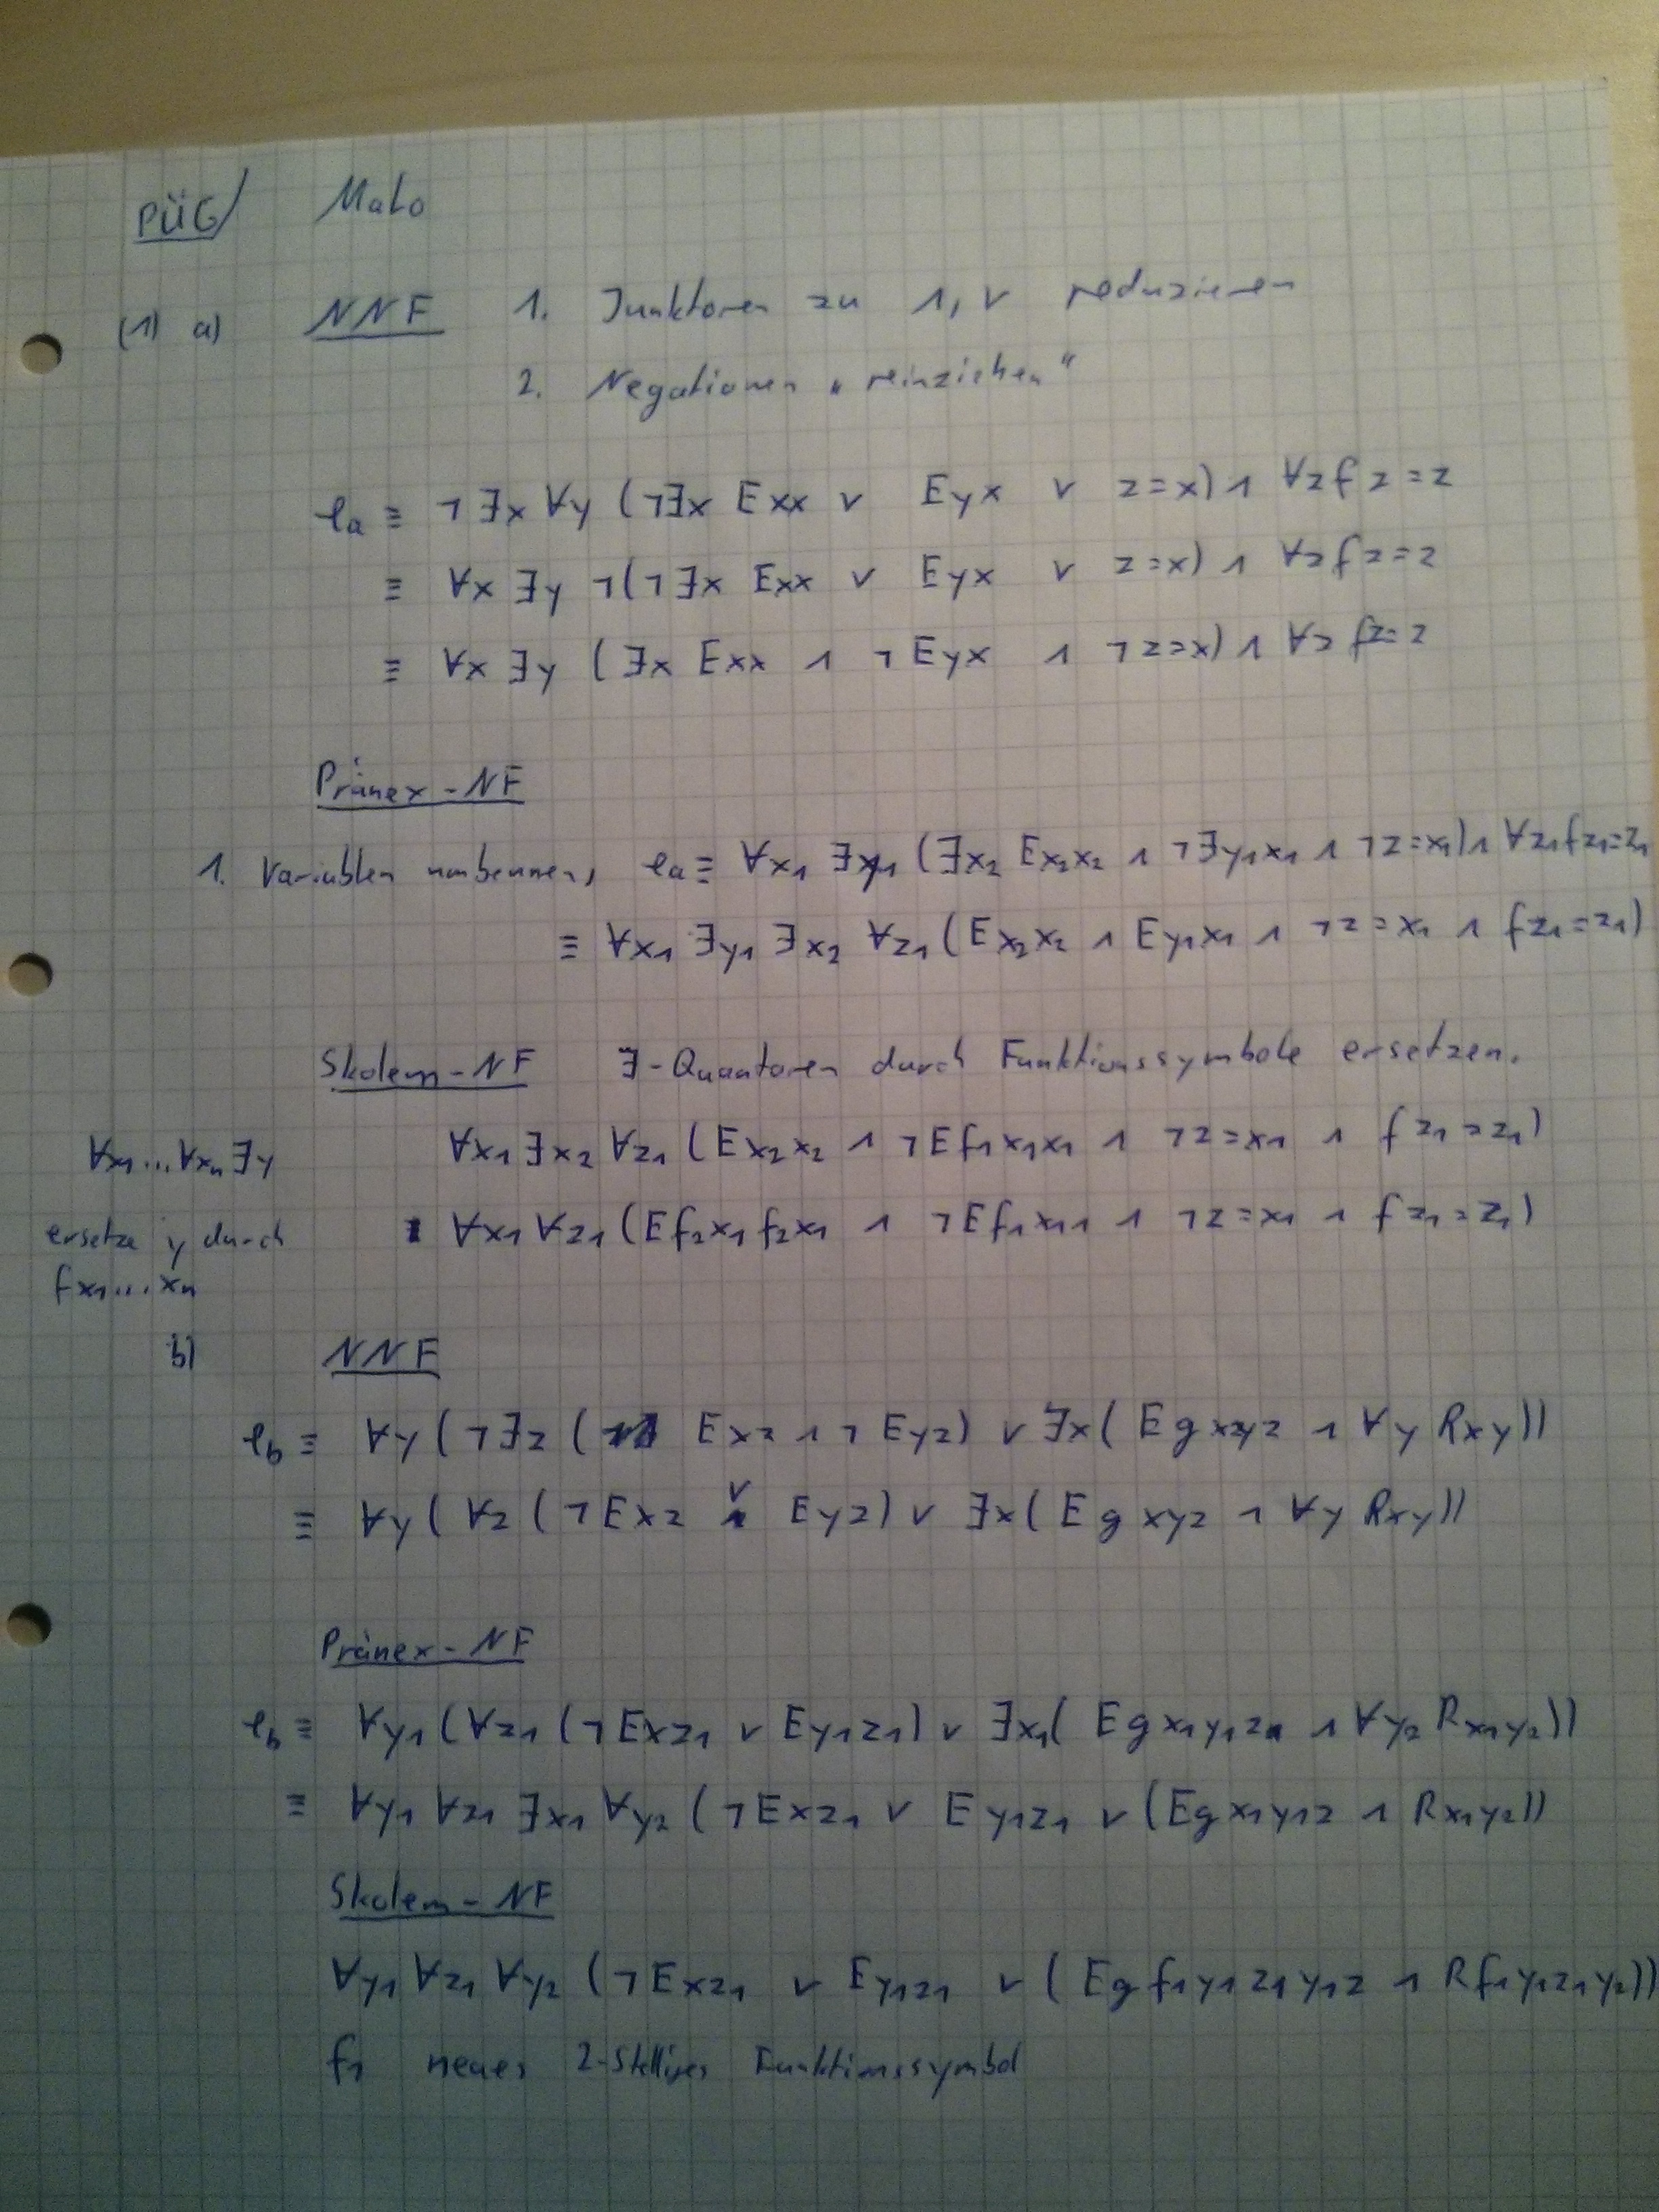 PÜG/ MaLo
(1) a) NNF 1. Junktoren zu ∧, ∨ reduzieren
2. Negationen „reinziehen“
φa ≡ ¬∃x ∀y (¬∃x Exx ∨ Eyx ∨ z=x) ∧ ∀z fz=z
≡ ∀x ∃y ¬(¬∃x Exx ∨ Eyx ∨ z=x) ∧ ∀z fz=z
≡ ∀x ∃y (∃x Exx ∧ ¬Eyx ∧ ¬z=x) ∧ ∀z fz=z
Pränex-NF
1. Variablen umbennen, φa ≡ ∀x₁ ∃y₁ (∃x₂ Ex₂x₂ ∧ ¬∃y₁x₁ ∧ ¬z=x₁) ∧ ∀z₁fz₁=z₁
≡ ∀x₁ ∃y₁ ∃x₂ ∀z₁ (Ex₂x₂ ∧ Ey₁x₁ ∧ ¬z=x₁ ∧ fz₁=z₁)
Skolem-NF ∃-Quantoren durch Funktionssymbole ersetzen.
∀x₁...∀xₙ∃y ∀x₁ ∃x₂ ∀z₁ (Ex₂x₂ ∧ ¬Ef₁x₁x₁ ∧ ¬z=x₁ ∧ fz₁=z₁)
ersetze y durch ∀x₁ ∀z₁ (Ef₂x₁f₂x₁ ∧ ¬Ef₁x₁₁ ∧ ¬z=x₁ ∧ fz₁=z₁)
fx₁...xₙ
b) NNF
φb ≡ ∀y (¬∃z (Exz ∧ ¬Eyz) ∨ ∃x (Egxyz ∧ ∀y Rxy))
≡ ∀y (∀z (¬Exz ∨ Eyz) ∨ ∃x (Egxyz ∧ ∀y Rxy))
Pränex-NF
φb ≡ ∀y₁ (∀z₁ (¬Exz₁ ∨ Ey₁z₁) ∨ ∃x₁ (Egx₁y₁z ∧ ∀y₂ Rx₁y₂))
≡ ∀y₁ ∀z₁ ∃x₁ ∀y₂ (¬Exz₁ ∨ Ey₁z₁ ∨ (Egx₁y₁z ∧ Rx₁y₂))
Skolem-NF
∀y₁ ∀z₁ ∀y₂ (¬Exz₁ ∨ Ey₁z₁ ∨ (Egf₁y₁z₁y₁z ∧ Rf₁y₁z₁y₂))
f₁ neues 2-stelliges Funktionssymbol